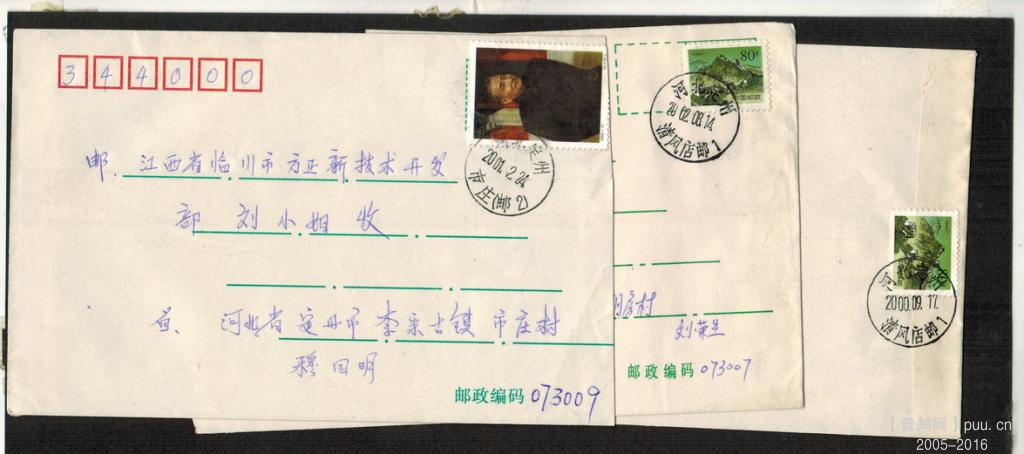 344000
邮. 江西省临川市方正新技术开发
部 刘小姐 收
河北省定州市李亲古镇市庄村
穆国明
邮政编码 073009
定州
2001.2.24
市庄(邮2)
80分
中国邮政
河北定州
2002.08.14
清风店邮1
村
刘荣生
邮政编码 073007
河北定州
2000.09.17
清风店邮1
[普邮网] puu.cn
2005-2016